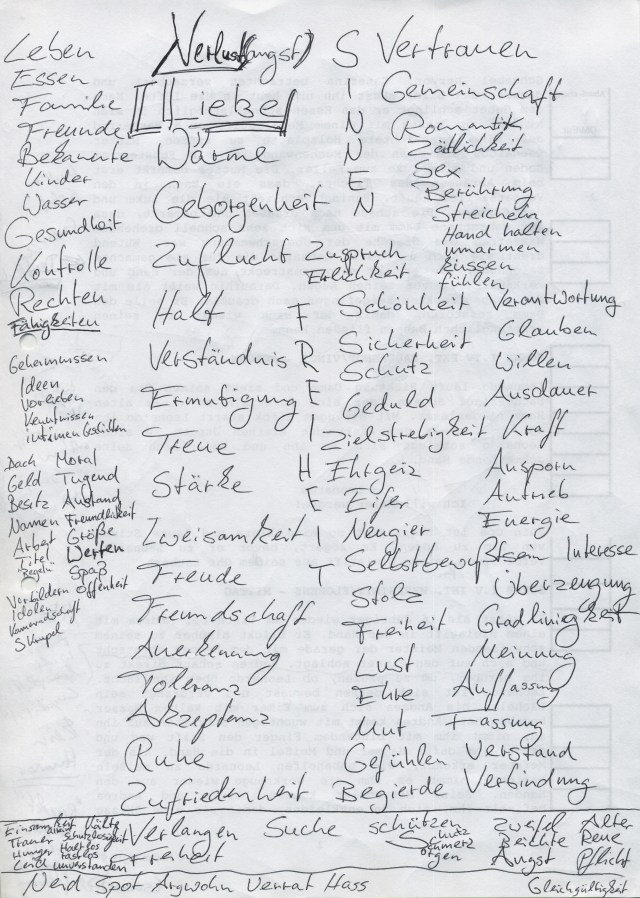 Leben
Essen
Familie
Freunde
Bekannte
Kinder
Wasser
Gesundheit
Kontrolle
Rechten
Fähigkeiten
Geheimnissen
Ideen
Vorlieben
Kenntnissen
Dach Moral
Geld Tugend
Besitz Anstand
Namen Freundlichkeit
Arbeit Größe
Titel Werten
Regeln Spaß
Vorbildern Offenheit
Idolen
Kameradschaft
Skrupel
Verlust(angst)
Liebe
Wärme
Geborgenheit
Zuflucht Zuspruch
Erlichkeit
Halt
Verständnis
Ermutigung
Treue
Stärke
Zweisamkeit
Freude
Freundschaft
Anerkennung
Toleranz
Akzeptanz
Ruhe
Zufriedenheit
S
I
N
N
E
N
F
R
E
I
H
E
I
T
Vertrauen
Gemeinschaft
Romantik
Zätlichkeit
Sex
Berührung
Streicheln
Hand halten
umarmen
küssen
fühlen
Schönheit Verantwortung
Sicherheit Glauben
Schutz Willen
Geduld Ausdauer
Zielstrebigkeit Kraft
Ehrgeiz Ansporn
Eifer Antrieb
Neugier Energie
Selbstbewußtsein Interesse
Stolz Überzeugung
Freiheit Gradlinigkeit
Lust Meinung
Ehre Auffassung
Mut Fassung
Gefühlen Verstand
Begierde Verbindung
Einsamkeit Kälte
Trauer Schutzlosigkeit
Hunger Haltlos
rastlos
Leid unverstanden
Verlangen Suche schützen Zweifel Alter
Freiheit Schutz Beichte Reue
Schmerz
Sorgen Angst Pflicht
Neid Spot Argwohn Verrat Hass Gleichgültigkeit